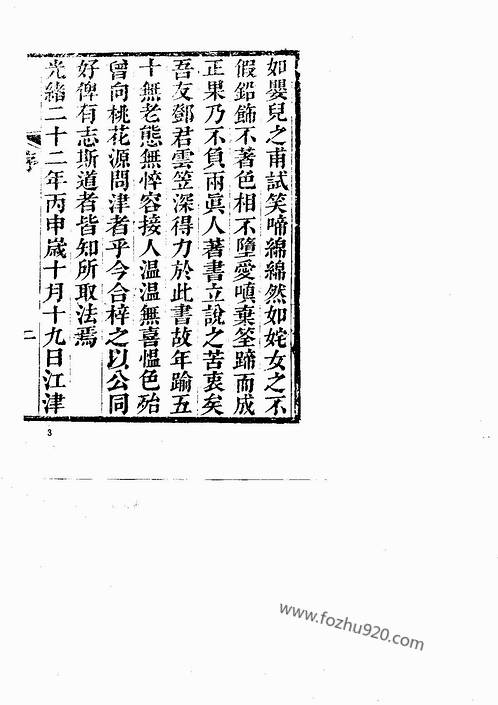 如嬰兒之甫試笑啼綿綿然如姹女之不
假鉛飾不著色相不墮愛嗔棄筌蹄而成
正果乃不負兩眞人著書立說之苦衷矣
吾友鄧君雲笠深得力於此書故年踰五
十無老態無悴容接人温温無喜愠色殆
曾向桃花源問津者乎今合梓之以公同
好俾有志斯道者皆知所取法焉
光緒二十二年丙申歲十月十九日江津
序
二
3
www.fozhu920.com